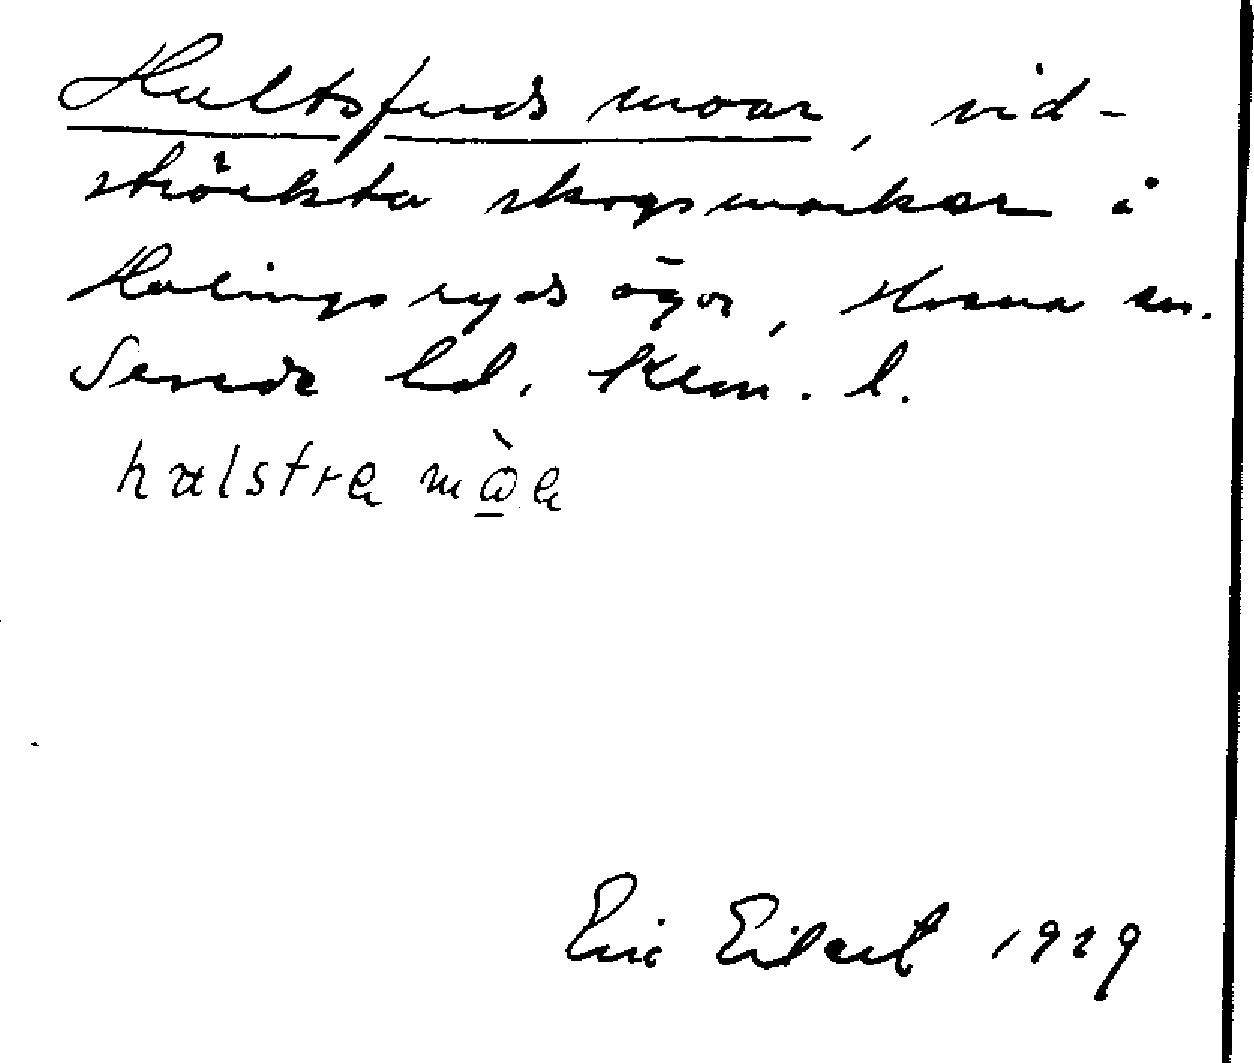 Hultsfreds moar, vid-
sträckta skogsmarker i
Hulingsryds ägor,
Sevede hd. Kalm. l.
Eric Eilert 1929